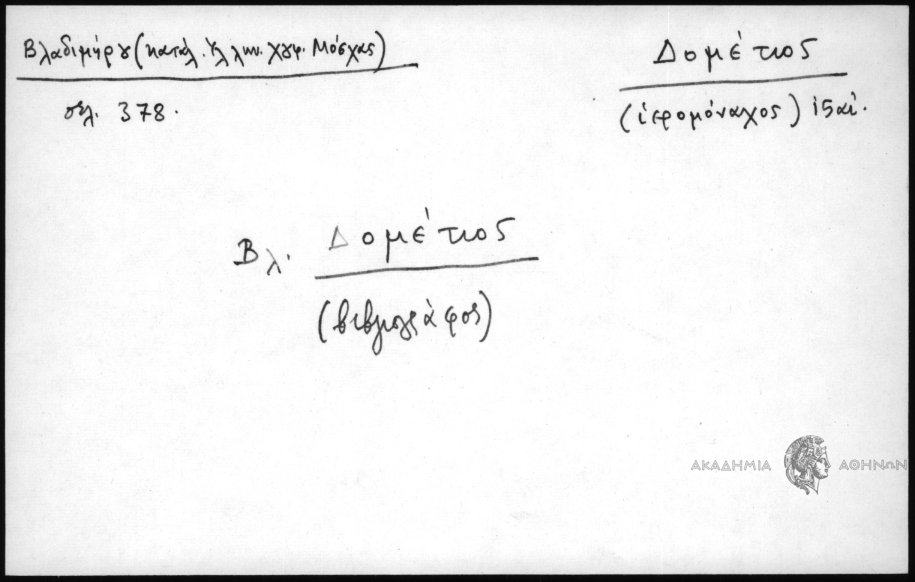 Βλαδιμήρου (κατάλ. Ἑλλην. χγφ. Μόσχας)
σελ. 378.
Δομέτιος
(ἱερομόναχος) ις αἰ.
Βλ. Δομέτιος
(βιβλιογράφος)
ΑΚΑΔΗΜΙΑ ΑΘΗΝΩΝ